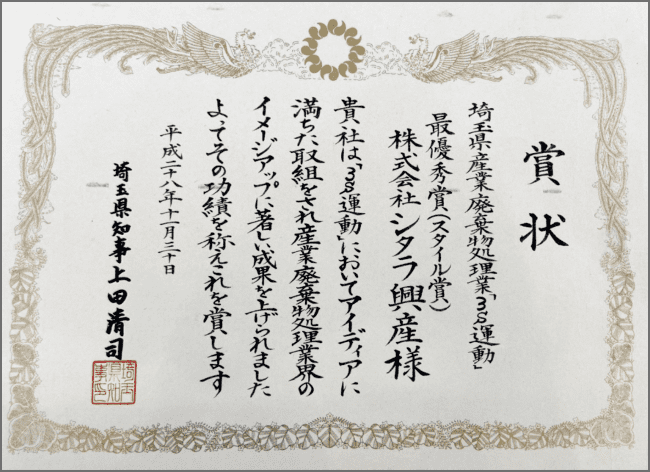 賞状
埼玉県産業廃棄物処理業「3S運動」
最優秀賞(スタイル賞)
株式会社シタラ興産様
貴社は「3S運動」においてアイディアに
満ちた取組をされ産業廃棄物処理業界の
イメージアップに著しい成果を上げられました
よってその功績を称えこれを賞します
平成二十八年十一月三十日
埼玉県知事上田清司